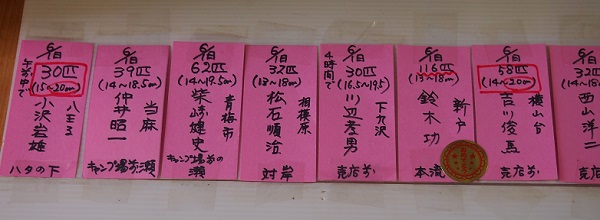 6/8日
午前中で
30匹
(15〜20cm)
八王子
小沢岩雄
ハタの下
6/8日
39匹
(14〜18.5cm)
当麻
仲井昭一
キャンプ場前ノ瀬
6/8日
62匹
(14〜19.5cm)
青梅市
柴崎雄史
キャンプ場前の
瀬
6/8日
32匹
(13〜18cm)
相模原
松石順治
対岸
6/8日
4時間で
30匹
(16.5〜19.5)
下九沢
川辺孝男
売店前
6/8日
116匹
13〜18cm
新戸
鈴木功
本流
6/8日
58匹
(14〜20cm)
横山台
吉川俊馬
売店前
6/8
32
(14〜
西山洋二